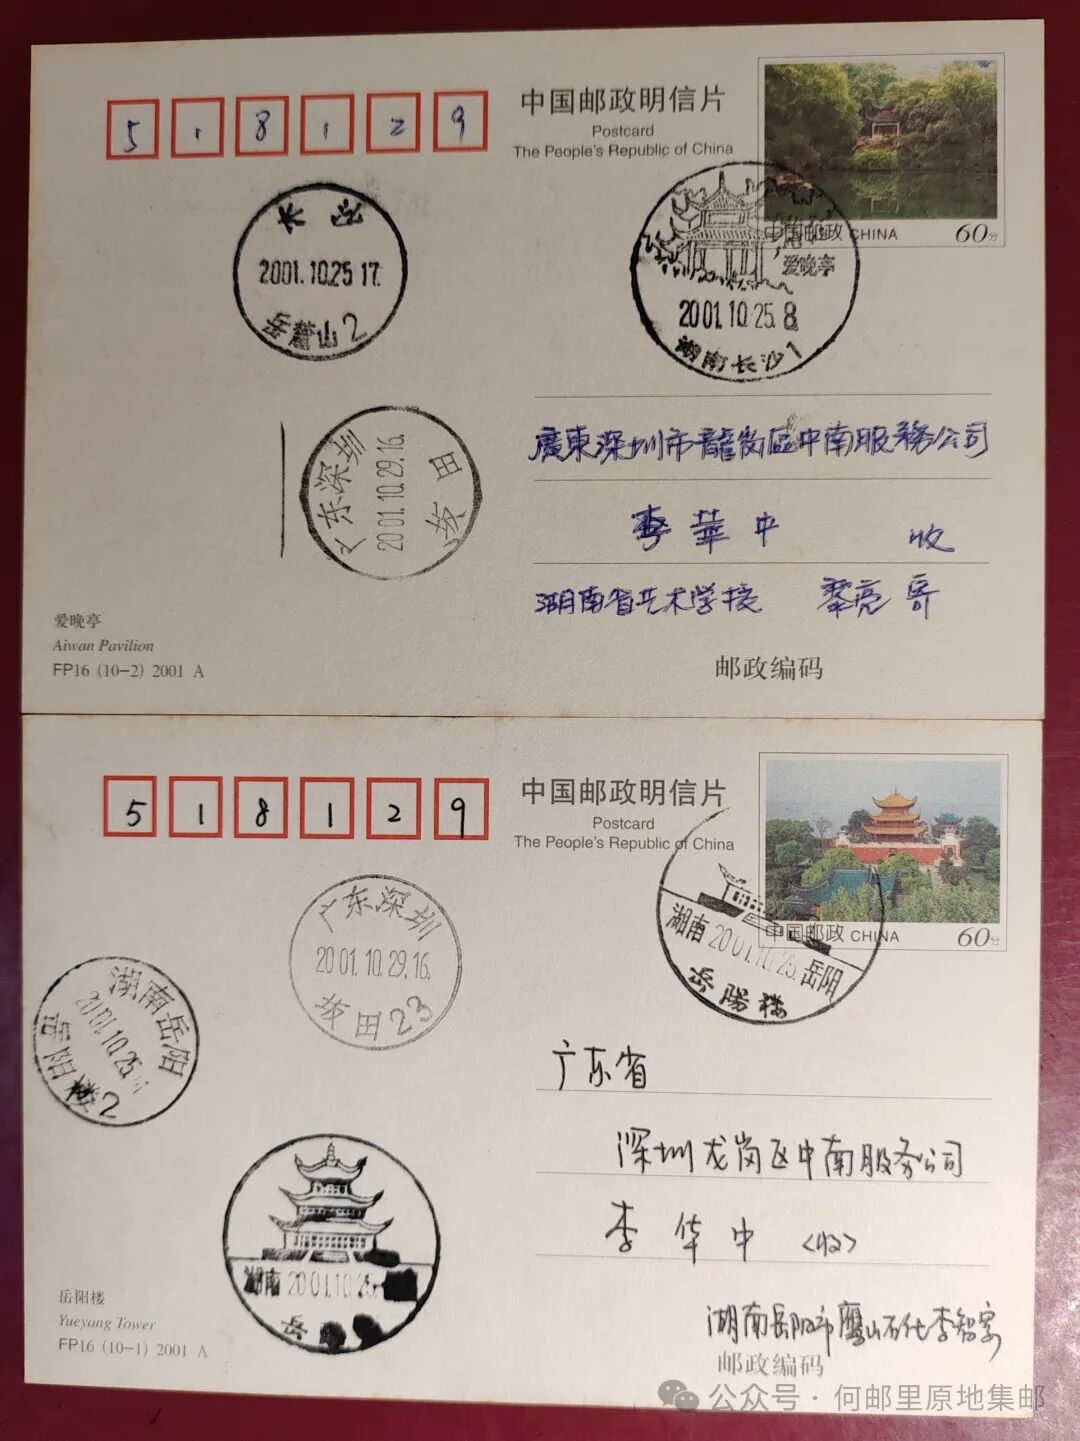 5 1 8 1 2 9
中国邮政明信片
Postcard
The People's Republic of China
中国邮政 CHINA 60分
长沙
2001.10.25 17.
岳麓山2
爱晚亭
2001.10.25.8
湖南长沙1
广东深圳
2001.10.29.16.
坂田
廣東深圳市龍崗區中南服務公司
李華中 收
湖南省艺术学校 黎亮寄
爱晚亭
Aiwan Pavilion
FP16 (10-2) 2001 A
邮政编码
5 1 8 1 2 9
中国邮政明信片
Postcard
The People's Republic of China
中国邮政 CHINA 60分
湖南 2001.10.25. 岳阳
岳陽楼
广东深圳
2001.10.29.16.
坂田23
湖南岳阳
2001.10.25
岳阳楼2
湖南 2001.10.25
岳
广东省
深圳龙岗区中南服务公司
李华中 <收>
湖南岳阳市鹰山石化李智寄
岳阳楼
Yueyang Tower
FP16 (10-1) 2001 A
邮政编码
公众号·何邮里原地集邮